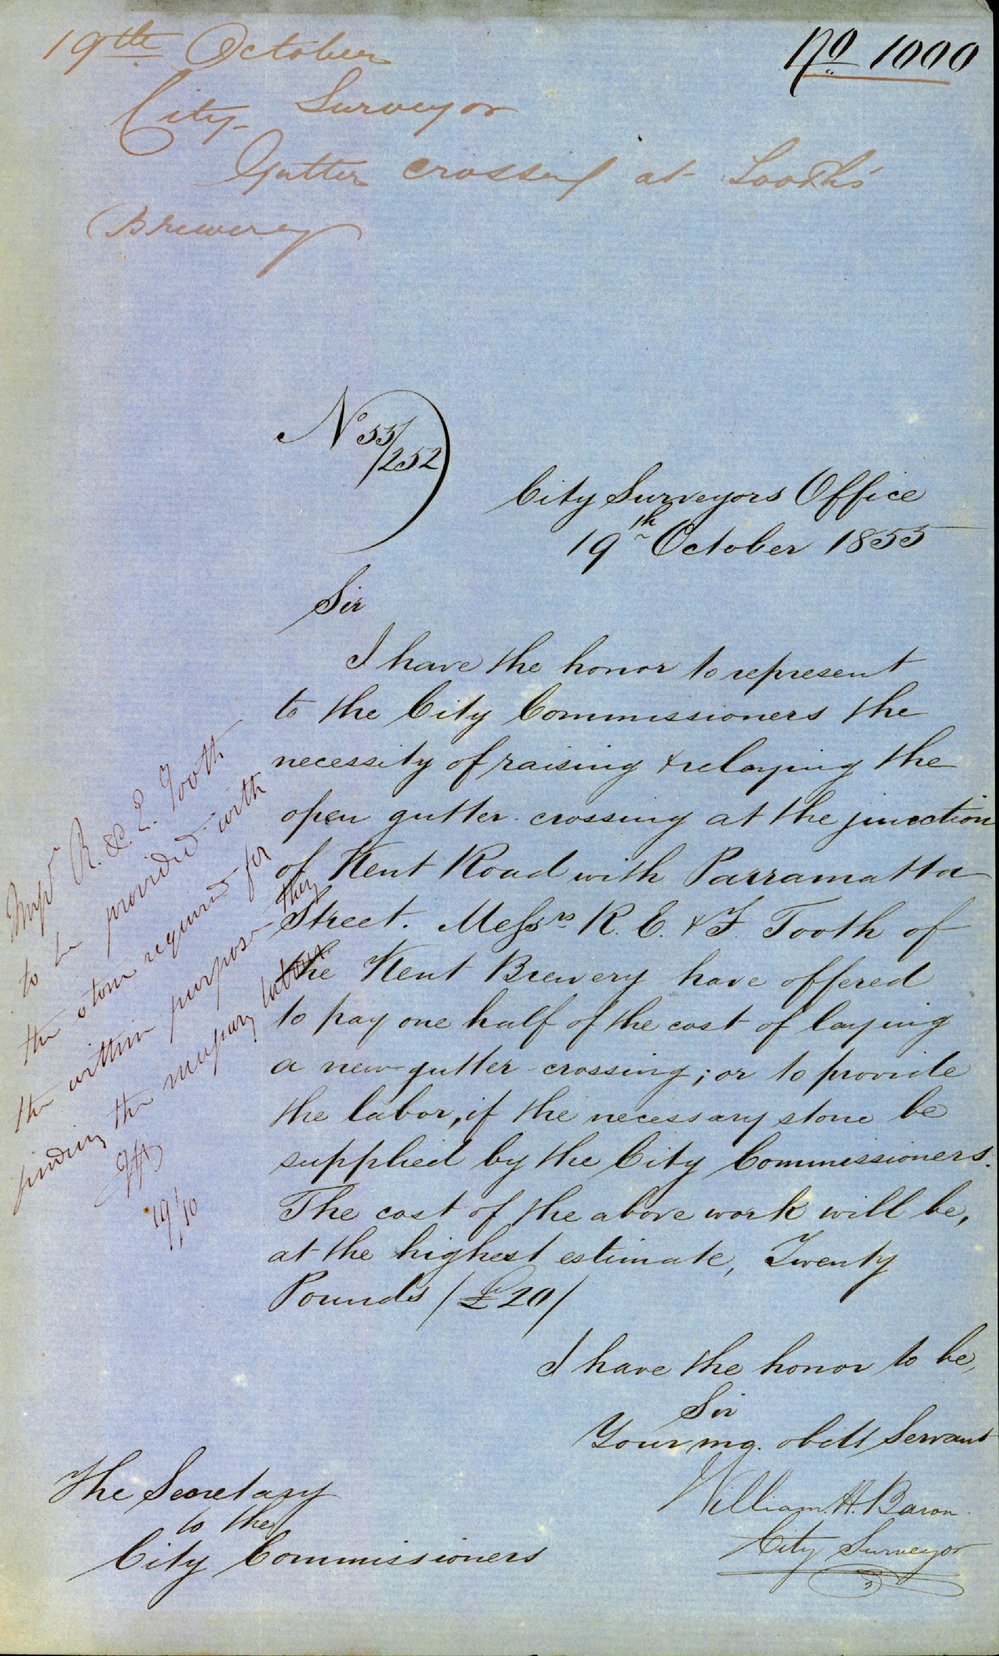 19th October
No 1000
City Surveyor
Gutter crossing at Tooths'
Brewery
No 55/252
City Surveyors Office
19th October 1855
Sir
I have the honor to represent
to the City Commissioners the
necessity of raising & relaying the
open gutter crossing at the junction
of Kent Road with Parramatta
Street. Messrs R. E. & F. Tooth of
the Kent Brewery have offered
to pay one half of the cost of laying
a new gutter crossing; or to provide
the labor, if the necessary stone be
supplied by the City Commissioners.
The cost of the above work will be,
at the highest estimate, Twenty
Pounds / £20 /
I have the honor to be,
Sir
Your mo. obdt Servant
William H. Baron
City Surveyor
The Secretary
to the
City Commissioners
Messrs R. & E. Tooth
to be provided with
the stone required for
the within purpose they
finding the necessary labour
19/10